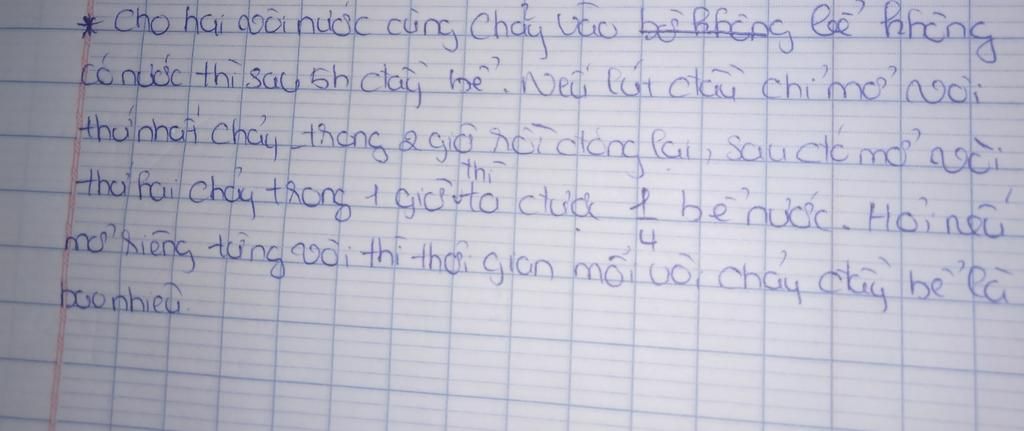 * Cho hai vòi nước cùng chảy vào bể không bể không
có nước thì sau 5h đầy bể. Nếu lúc đầu chỉ mở vòi
thứ nhất chảy trong 2 giờ rồi đóng lại, sau đó mở vòi
thứ hai chảy trong 1 giờ thì ta được 1/4 bể nước. Hỏi nếu
mở riêng từng vòi thì thời gian mỗi vòi chảy đầy bể là
bao nhiêu.